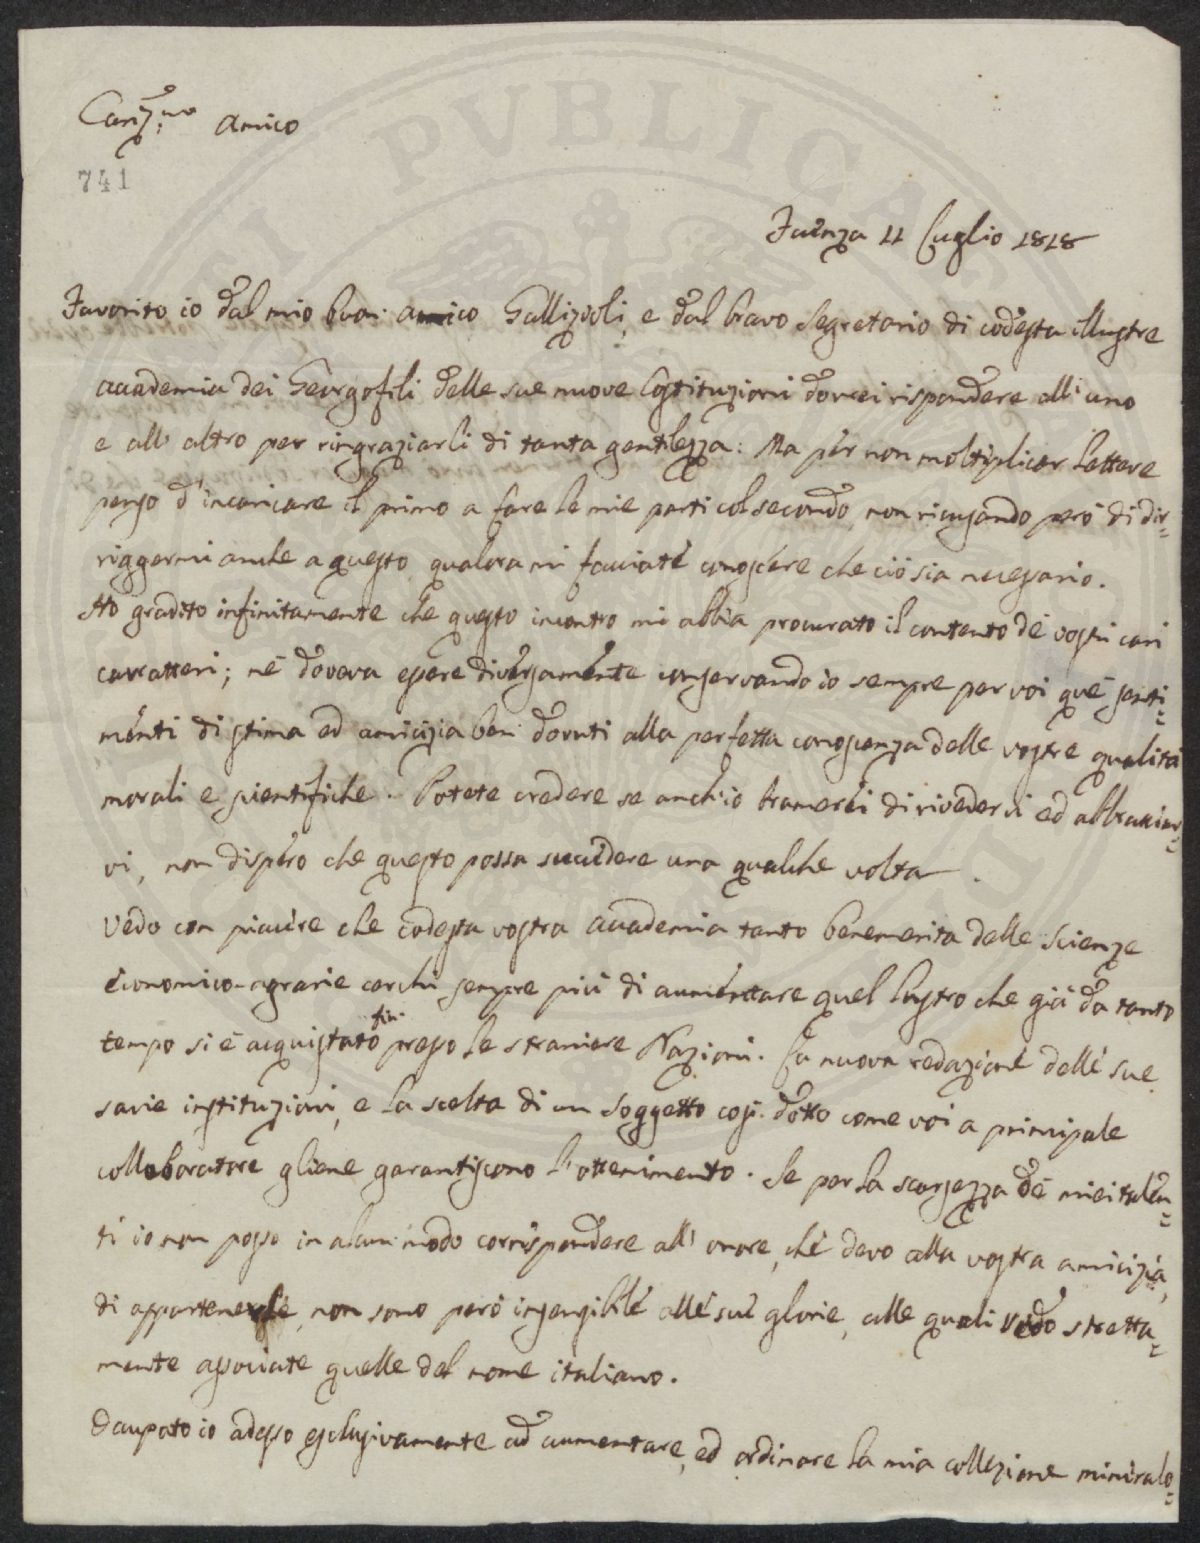 Cariss.mo Amico
741
Faenza 11 Luglio 1818
Favorito io dal mio buon amico Gallizioli, e dal bravo Segretario di codesta illustre
accademia dei Georgofili delle sue nuove Costituzioni dovrei rispondere all' uno
e all' altro per ringraziarli di tanta gentilezza: Ma per non moltiplicar lettere
penso d'incaricare il primo a fare le mie parti col secondo, non ricusando però di dir=
riggermi anche a questo qualora mi facciate conoscere che ciò sia necessario.
Ho gradito infinitamente che questo incontro mi abbia procurato il contento de' vostri cari
carratteri; né doveva essere diversamente conservando io sempre per voi que' senti=
menti di stima ed amicizia ben dovuti alla perfetta conoscenza delle vostre qualità
morali e scientifiche. Potete credere se anch'io bramerei di rivedervi ed abbracciar=
vi, non dispero che questo possa succedere una qualche volta.
Vedo con piacere che codesta vostra accademia tanto benemerita delle scienze
economico-agrarie cerchi sempre più di aumentare quel lustro che già da tanto
tempo si è acquistato fin presso le straniere Nazioni. La nuova redazione delle sue
savie instituzioni, e la scelta di un soggetto così dotto come voi a principale
collaboratore gliene garantiscono l'ottenimento. Se per la scarsezza de' miei talen=
ti io non posso in alcun modo corrispondere all' onore, che devo alla vostra amicizia,
di appartenerle, non sono però insensibile alle sue glorie, alle quali vedo stretta=
mente associate quelle del nome italiano.
Occupato io adesso esclusivamente ad aumentare, ed ordinare la mia collezione mineralo=